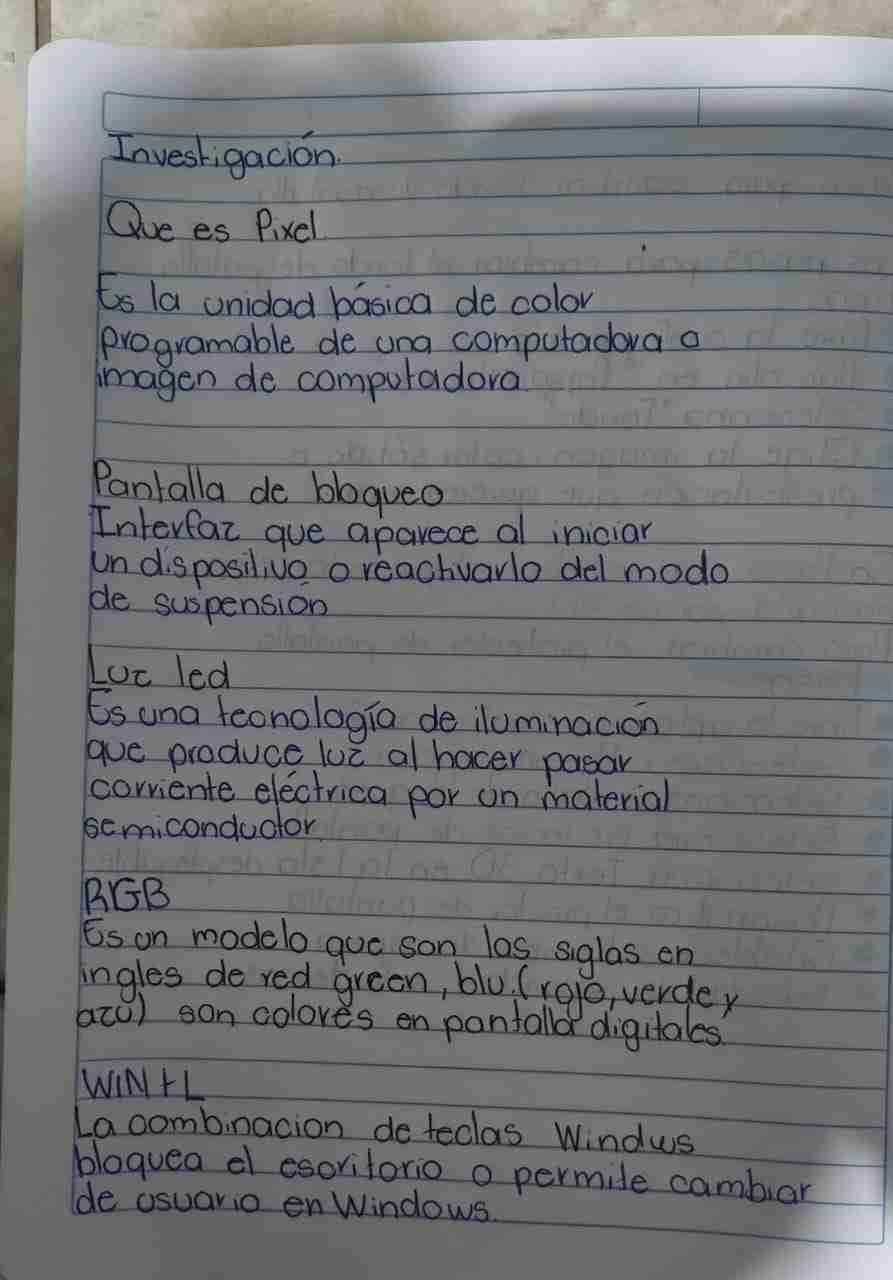 Investigación.
Que es Pixel
Es la unidad básica de color
programable de una computadora o
imagen de computadora
Pantalla de bloqueo
Interfaz que aparece al iniciar
un dispositivo o reactivarlo del modo
de suspensión
Luz led
Es una tecnología de iluminación
que produce luz al hacer pasar
corriente eléctrica por un material
semiconductor
RGB
Es un modelo que son las siglas en
ingles de red green, blu. (rojo, verde y
azul) son colores en pantalla digitales.
WIN+L
La combinacion de teclas Windws
bloquea el escritorio o permite cambiar
de usuario en Windows.